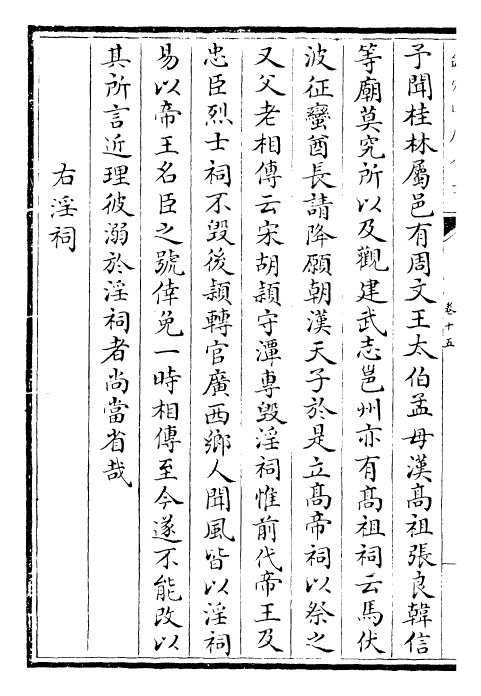 卷十五
予聞桂林屬邑有周文王太伯孟母漢高祖張良韓信
等廟莫究所以及觀建武志邕州亦有高祖祠云馬伏
波征蠻酋長請降願朝漢天子於是立高帝祠以祭之
又父老相傳云宋胡頴守潭專毀淫祠惟前代帝王及
忠臣烈士祠不毀後頴轉官廣西鄉人聞風皆以淫祠
易以帝王名臣之號倖免一時相傳至今遂不能改以
其所言近理彼溺於淫祠者尚當省哉
右淫祠